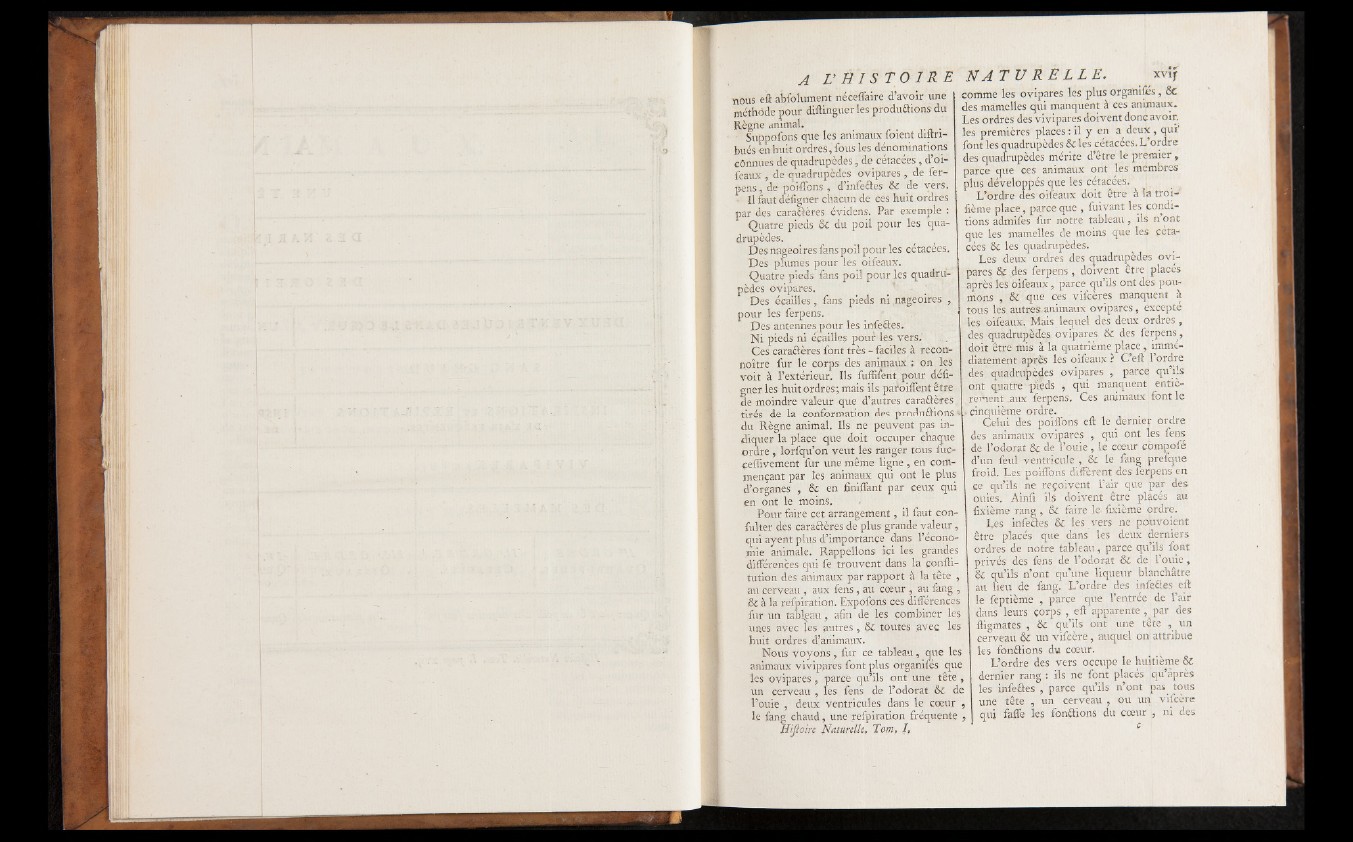 A L'HISTOIRE NATURELLE. xvij
nous eſt abſolument néceſſaire d'avoir une
méthode pour diſtinguer les productions du
Règne animal.
Suppoſons que les animaux ſoient diſtri-
bués en huit ordres, ſous les dénominations
connues de quadrupèdes, de cétacées, d'oi-
ſeaux, de quadrupèdes ovipares, de ſer-
pens, de poiſſons, d'inſectes & de vers.
Il faut déſigner chacun de ces huit ordres
par des caractères évidens. Par exemple :
Quatre pieds & du poil pour les qua-
drupèdes.
Des nageoires ſans poil pour les cétacées.
Des plumes pour les oiſeaux.
Quatre pieds ſans poil pour les quadru-
pèdes ovipares.
Des écailles, ſans pieds ni nageoires,
pour les ſerpens.
Des antennes pour les inſectes.
Ni pieds ni écailles pour les vers.
Ces caractères ſont très-faciles à recon-
noître ſur le corps des animaux ; on les
voit à l'extérieur. Ils ſuffiſent pour déſi-
gner les huit ordres; mais ils paroiſſent être
de moindre valeur que d'autres caractères
tirés de la conformation des productions
du Règne animal. Ils ne peuvent pas in-
diquer la place que doit occuper chaque
ordre, lorſqu'on veut les ranger tous ſuc-
ceſſivement ſur une même ligne, en com-
mençant par les animaux qui ont le plus
d'organes, & en finiſſant par ceux qui
en ont le moins.
Pour faire cet arrangement, il faut con-
ſulter des caractères de plus grande valeur,
qui ayent plus d'importance dans l'écono-
mie animale. Rappellons ici les grandes
différences qui ſe trouvent dans la conſti-
tution des animaux par rapport à la tête,
au cerveau, aux ſens, au cœur, au ſang,
& à la reſpiration. Expoſons ces différences
ſur un tableau, afin de les combiner les
unes avec les autres, & toutes avec les
huit ordres d'animaux.
Nous voyons, ſur ce tableau, que les
animaux vivipares ſont plus organiſés que
les ovipares, parce qu'ils ont une tête,
un cerveau, les ſens de l'odorat & de
l'ouie, deux ventricules dans le cœur,
le ſang chaud, une reſpiration fréquente,
Hiſtoire Naturelle. Tom. I.
comme les ovipares les plus organiſés, &
des mamelles qui manquent à ces animaux.
Les ordres des vivipares doivent donc avoir
les premières places : il y en a deux, qui
ſont les quadrupèdes & les cétacées. L'ordre
des quadrupèdes mérite d'être le premier,
parce que ces animaux ont les membres
plus développés que les cétacées.
L'ordre des oiſeaux doit être à la troi-
ſième place, parce que, ſuivant les condi-
tions admiſes ſur notre tableau, ils n'ont
que les mamelles de moins que les céta-
cées & les quadrupèdes.
Les deux ordres des quadrupèdes ovi-
pares & des ſerpens, doivent être placés
après les oiſeaux, parce qu'ils ont des pou-
mons, & que ces viſcères manquent à
tous les autres animaux ovipares, excepté
les oiſeaux. Mais lequel des deux ordres,
des quadrupèdes ovipares & des ſerpens,
doit être mis à la quatrième place, immé-
diatement après les oiſeaux ? C'eſt l'ordre
des quadrupèdes ovipares, parce qu'ils
ont quatre pieds, qui manquent entiè-
rement aux ſerpens. Ces animaux ſont le
cinquième ordre.
Celui des poiſſons eſt le dernier ordre
des animaux ovipares, qui ont les ſens
de l'odorat & de l'ouie, le cœur compoſé
d'un ſeul ventricule, & le ſang preſque
froid. Les poiſſons diffèrent des ſerpens en
ce qu'ils ne reçoivent l'air que par des
ouies. Ainſi ils doivent être placés au
ſixième rang, & faire le ſixième ordre.
Les inſectes & les vers ne pouvoient
être placés que dans les deux derniers
ordres de notre tableau, parce qu'ils ſont
privés des ſens de l'odorat & de l'ouie,
& qu'ils n'ont qu'une liqueur blanchâtre
au lieu de ſang. L'ordre des inſectes eſt
le ſeptième, parce que l'entrée de l'air
dans leurs corps, eſt apparente, par des
ſtigmates, & qu'ils ont une tête, un
cerveau & un viſcère, auquel on attribue
les fonctions du cœur.
L'ordre des vers occupe le huitième &
dernier rang : ils ne ſont placés qu'après
les inſectes, parce qu'ils n'ont pas tous
une tête, un cerveau, ou un viſcère
qui faſſe les fonctions du cœur, ni des
c